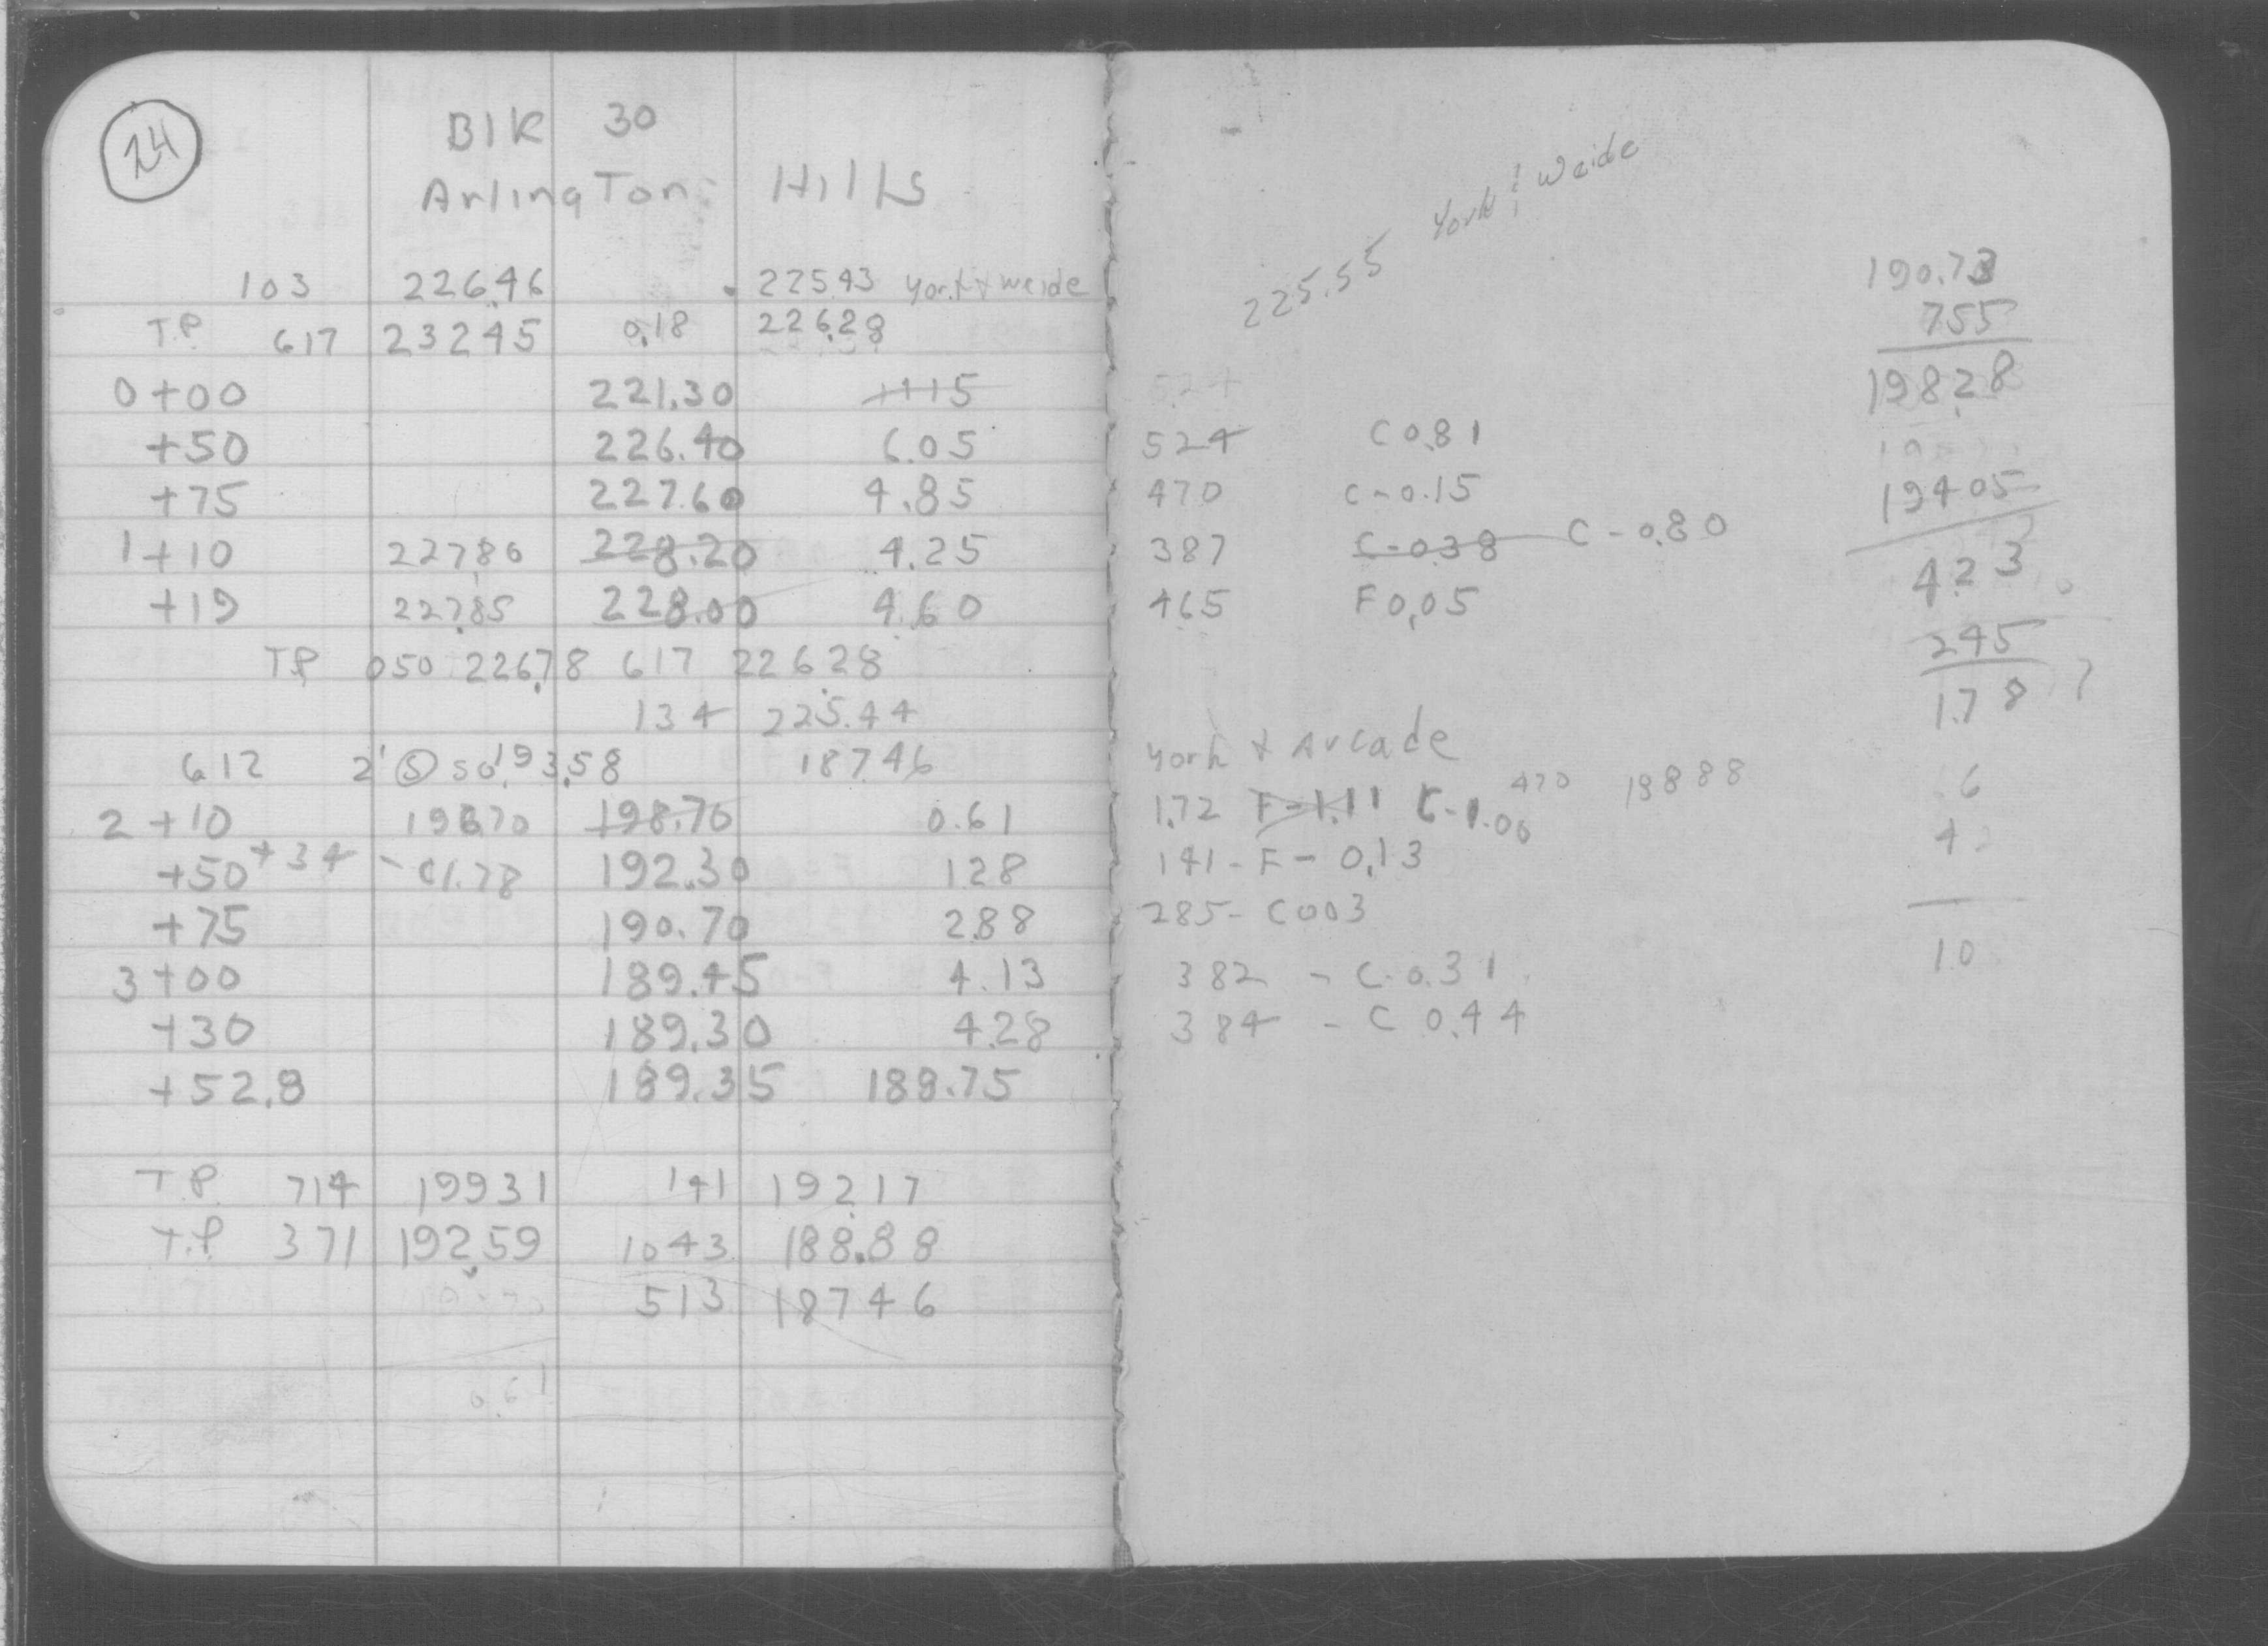 24
Blk 30
Arlington Hills
103 226.46 225.43 York & Weide
T.P. 617 23245 0.18 226.28
0+00 221.30 1115
+50 226.40 6.05
+75 227.60 4.85
1+10 227.80 228.20 4.25
+19 227.85 228.00 4.60
T.P. 050 226.78 617 226.28
134 225.44
612 2' S So 193.58 187.46
2+10 196.70 198.70 0.61
+50 +34 - C1.78 192.30 128
+75 190.70 288
3+00 189.45 4.13
+30 189.30 4.28
+52.8 189.35 188.75
T.P. 714 19931 141 192.17
T.P. 371 192.59 1043 188.88
513 18746
0.61
225.55 York & Weide
524 C 0.81
470 C-0.15
387 C-0.38 C-0.80
465 F 0.05
York & Arcade
1.72 F-1.11 C-1.00 470 18888
141- F- 0.13
285- C003
382 - C-0.31
384 - C 0.44
190.73
755
198.28
19405
4.23
245
1.78 ?
6
4
10